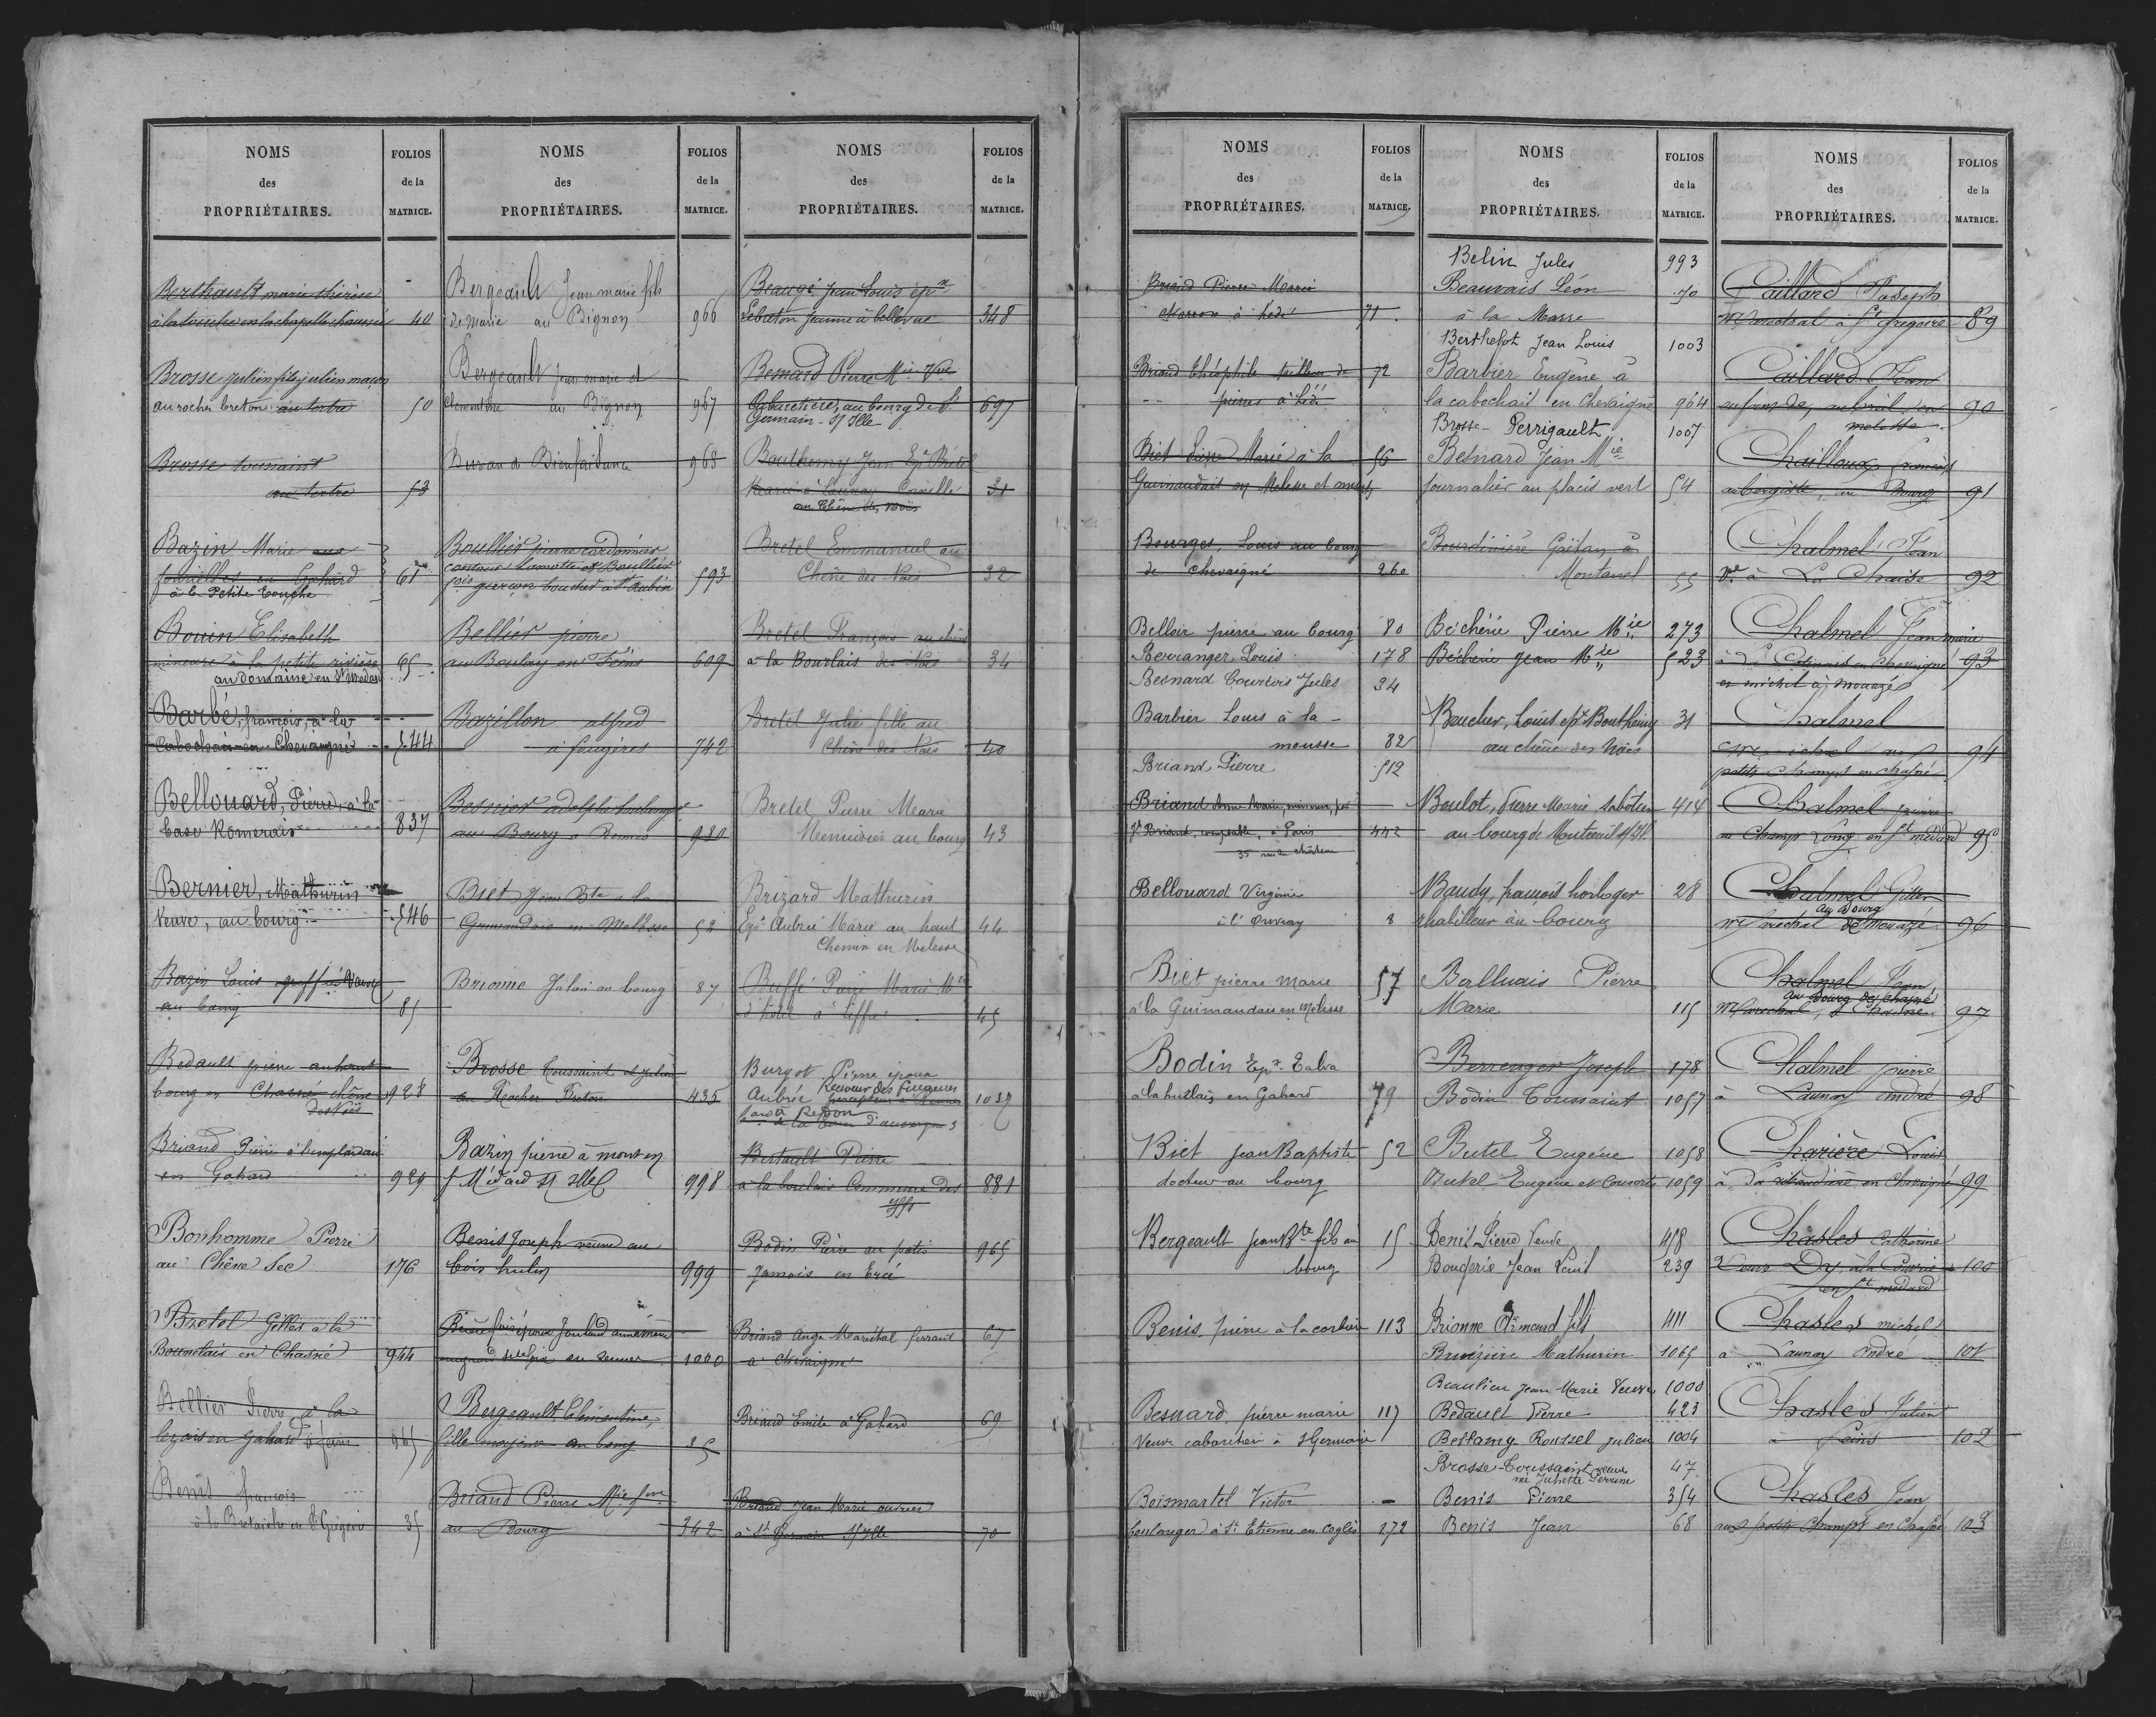 NOMS
des
PROPRIÉTAIRES.
FOLIOS
de la
MATRICE.
Berthault marie thérèse
à la touche en la chapelle chaussée 40
Brosse julien fils julien maçon
au rocher breton au tertre 50
Brosse toussaint
au tertre 53
Bazin Marie aux
en Gahard 61
à la Petite touche
Bouin Elisabeth
mineure à la petite rivière 65
au domaine en St Médard
Barbé, françois, à la
Cabochais en Chevaigné 544
Bellouard, Pierre, à la
base Romerais 837
Bernier, Mathurin
Veuve, au bourg 546
Bazin Louis
au bourg 85
Bedault pierre au haut
bourg en Chasné chêne 928
des Noës
Briand Pierre
en Gahard 929
Bonhomme Pierre
au Chêne Sec 176
Bretel Gilles à la
Bournelais en Chasné 944
Bellier Pierre à la
en Gahard 965
Benis françois
à la Bretaiche en St Grégoire 35
NOMS
des
PROPRIÉTAIRES.
FOLIOS
de la
MATRICE.
Bergeault Jean marie fils
de marie au Bignon 966
Bergeault Jean marie et
Clémentine au Bignon 967
Bureau de Bienfaisance 968
Boullier pierre cordonnier
Lamotte et Boullier
fois garçon boucher à St Aubin 593
Bellier pierre
au Boulay en Feins 609
Bazillon alfred
à fougères 742
Besnier adolphe horloger
au Bourg 980
Biet Jean Bte à la
Guimandais en Melesse 52
Brionne Julien au bourg 87
Brosse Toussaint et Julien
au Rocher Breton 435
Bazin pierre à mont en
St Médard St Ille 998
Benis Joseph veuve au
bois hulin 999
1000
Bergeault Clémentine,
fille majeure au bourg 35
Briand Pierre Mie fme
au Bourg 342
NOMS
des
PROPRIÉTAIRES.
FOLIOS
de la
MATRICE.
Beaugé Jean Louis épx
Lebreton Jeanne à bellevue 348
Besnard Pierre Mie Vve
Cabaretière, au bourg de St 697
Germain-s/Ille
Bouthemy Jean Epx Bretel
Marie à Launay 31
au Chêne des Noës
Bretel Emmanuel au
Chêne des Noës 32
Bretel François au chêne
à la Bourlais des Noës 34
Bretel Julie fille au
Chêne des Noës 40
Bretel Pierre Marie
Menuisier au bourg 43
Brizard Mathurin
Epx Aubrée Marie au haut 44
Chemin en Melesse
Buffé Pierre Marie Md
d'hôtel à Liffré 45
Burgot Pierre époux
Aubrée Receveur des finances
percepteur à Rennes 1037
à Redon
Bertault Pierre
à la boulais Commune des 881
Iffs
Bodin Pierre au patis 965
Jamois en Ercé
Briand Ange Maréchal ferrant 67
à Chevaigné
Briand Emile à Gahard 69
Briand Jean Marie ouvrier
à St Germain s/Ille 70
NOMS
des
PROPRIÉTAIRES.
FOLIOS
de la
MATRICE.
Briand Pierre Marie
à hédé 71
Briand Théophile tailleur de 72
pierres à hédé
Biet Pierre Marie à la 56
Guimandais en Melesse
Bourges, Louis au bourg
de Chevaigné 260
Belloir pierre au bourg 80
Berranger Louis 178
Besnard Courtois Jules 34
Barbier Louis à la
mousse 82
Briand Pierre 512
Briand Anne Marie, mineure, par
Briand, comptable, à Paris 442
35 rue du château
Bellouard Virginie
8
Biet pierre marie 57
à la Guimandais en Melesse
Bodin Epx Talva
à la hullais en Gahard 79
Biet Jean Baptiste 52
docteur au bourg
Bergeault Jean Bte fils au 15
bourg
Benis pierre à la corbière 113
Besnard, pierre marie 117
Veuve cabaretier à St Germain
Boismartel Victor
boulanger à St Etienne en Coglès 172
NOMS
des
PROPRIÉTAIRES.
FOLIOS
de la
MATRICE.
Belin Jules 993
Beauvais Léon 70
à la Masse
Berthelot Jean Louis 1003
Barbier Eugène à
la cabochais en Chevaigné 964
Brosse-Perrigault 1007
Besnard Jean Mie
journalier au placis vert 54
Bourdinière Gaëtan à
Montanel 55
Béchérie Pierre Mie 273
Bécherie Jean Mie 523
Boucher, Louis epx Bouthemy 31
au chêne des Noës
Boulot, Pierre Marie Sabotier 414
au bourg de Montreuil s/Ille
Baudy, françois horloger 28
rhabilleur au bourg
Balluais Pierre
Marie 115
Berrenger Joseph 178
Bodin Toussaint 1057
Butel Eugène 1058
Butel Eugène et Consorts 1059
Benis Pierre Veuve 458
Bougerie Jean Louis 239
Brionne Armand fils 411
Mathurin 1065
Beaulieu Jean Marie Veuve 1000
Bedault Pierre 423
Bellamy-Roussel Julien 1004
Brosse-Toussaint veuve 47
née Juhette Perrine
Benis Pierre 354
Benis Jean 68
NOMS
des
PROPRIÉTAIRES.
FOLIOS
de la
MATRICE.
Caillard Joseph
Maréchal à St Grégoire 89
Caillard Jean
90
melesse
Chailloux françois
aubergiste, au Bourg 91
Chalmel Jean
Vve à La Chaise 92
Chalmel Jean marie
en Chevaigné 93
et michel à mouazé
Chalmel
94
petits Champs en Chasné
Chalmel pierre
au Champ Long en St médard 95
Chalmel Gilles
au Bourg
Maréchal de Mouazé 96
Chalmel Jean,
au Bourg de Chasné
Maréchal, à Chasné 97
Chalmel pierre
à Launay André 98
Charière Louis
à La en Chevaigné 99
Chasles Catherine
Veuve 100
en St médard
Chasles michel
à Launay André 101
Chasles Julien
à Feins 102
Chasles Jean
aux petits Champs en Chasné 103